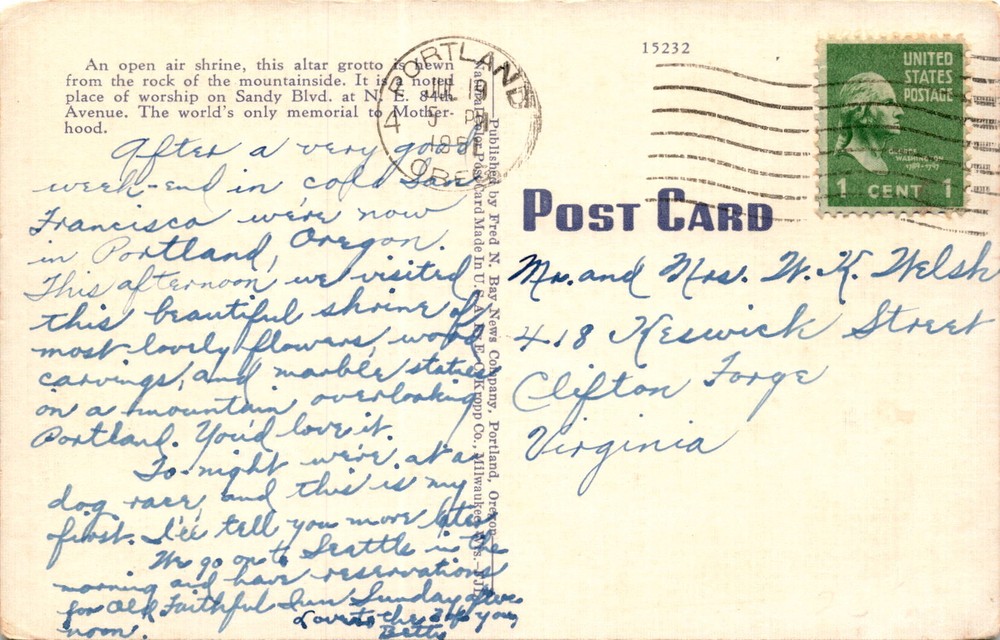 An open air shrine, this altar grotto is hewn
from the rock of the mountainside. It is a noted
place of worship on Sandy Blvd. at N. E. 84th
Avenue. The world's only memorial to Mother-
hood.
After a very good
week-end in cold San
Francisco we're now
in Portland, Oregon.
This afternoon we visited
this beautiful shrine of
most lovely flowers, wood
carvings, and marble statues
on a mountain overlooking
Portland. You'd love it.
To-night we're at a
dog race, and this is my
first. I'll tell you more later.
We go on to Seattle in the
morning and have reservations
for Old Faithful Inn Sunday after
noon.
Love to the 2 of you,
Betty
Published by Fred N. Bay News Company, Portland, Oregon
Post Card Made In U.S.A. by E. C. Kropp Co., Milwaukee, Wis.
PORTLAND
JUL 19
5 PM
OREG
15232
UNITED
STATES
POSTAGE
GEORGE
WASHINGTON
1789-1797
1 CENT 1
POST CARD
Mr. and Mrs. W. K. Welsh
418 Keswick Street
Clifton Forge
Virginia